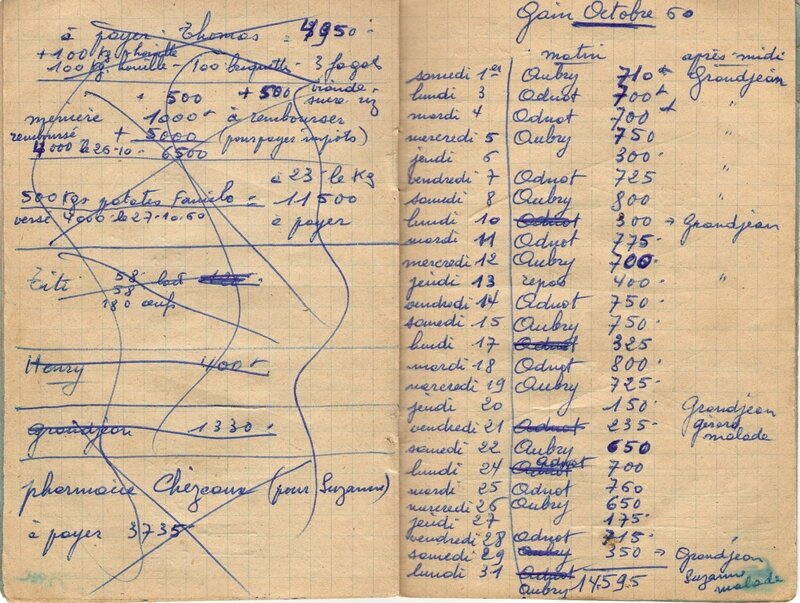 à payer. Thomas = 4950.
+ 100 Kg houille
100 Kg. houille - 100 briquette - 3 fagot
+ 500 + 500 viande
sucre riz
memière 1000 à rembourser
remboursé + 5000 (pour payer impôts)
4000 le 26-10- 6500
à 23 le Kg
500 Kgs patates = 11500
versé 4000 le 27-10-50 à payer
Titi 58 lait
58
180 œufs
Henry 400
Grandjean 1330.
pharmacie Chézeaux (pour Suzanne)
à payer 3735
Gain Octobre 50
matin après-midi
samedi 1er Aubry 710 Grandjean
lundi 3 Odnot 700 "
mardi 4 Odnot 700 "
mercredi 5 Aubry 750
jeudi 6 300. "
vendredi 7 Odnot 725 "
samedi 8 Aubry 800 "
lundi 10 Odnot 300 → Grandjean
mardi 11 Odnot 775.
mercredi 12 Aubry 700.
jeudi 13 repos 400. "
vendredi 14 Odnot 750.
samedi 15 Aubry 750.
lundi 17 Odnot 325
mardi 18 Odnot 800.
mercredi 19 Aubry 725.
jeudi 20 150. Grandjean
vendredi 21 Odnot 235. gérard malade
samedi 22 Aubry 650
lundi 24 Odnot 700
mardi 25 Odnot 760
mercredi 26 Aubry 650
jeudi 27 175.
vendredi 28 Odnot 715.
samedi 29 Aubry 350 → Grandjean
lundi 31 Odnot Suzanne malade
Aubry 14.595